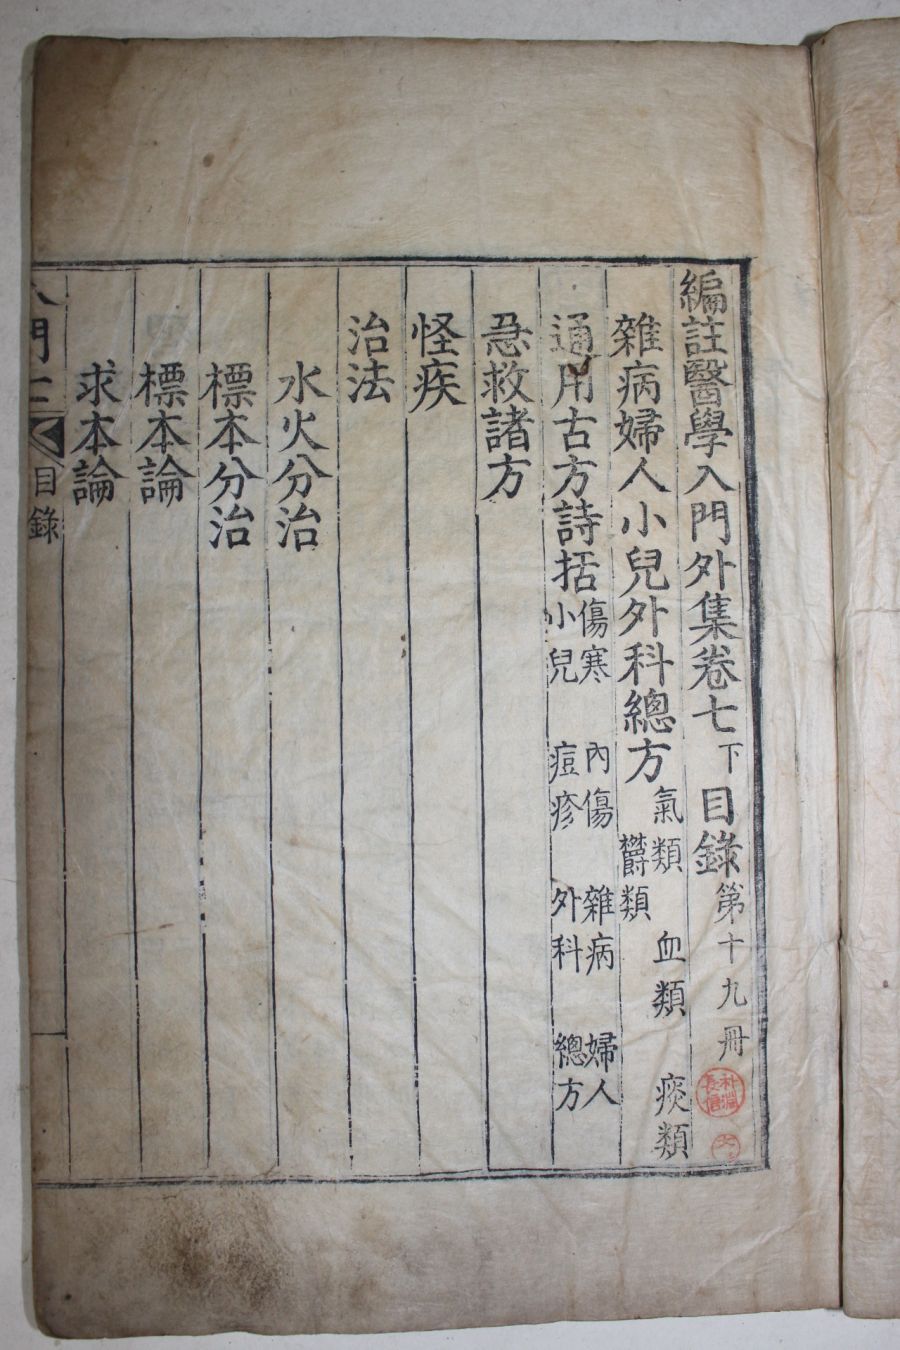 編註醫學入門外集卷七下目錄第十九冊
雜病婦人小兒外科總方 氣類 血類 痰類 鬱類
通用古方詩括 傷寒 內傷 雜病 婦人 小兒 痘疹 外科 總方
急救諸方
怪疾
治法
水火分治
標本分治
標本論
求本論
入門
目錄